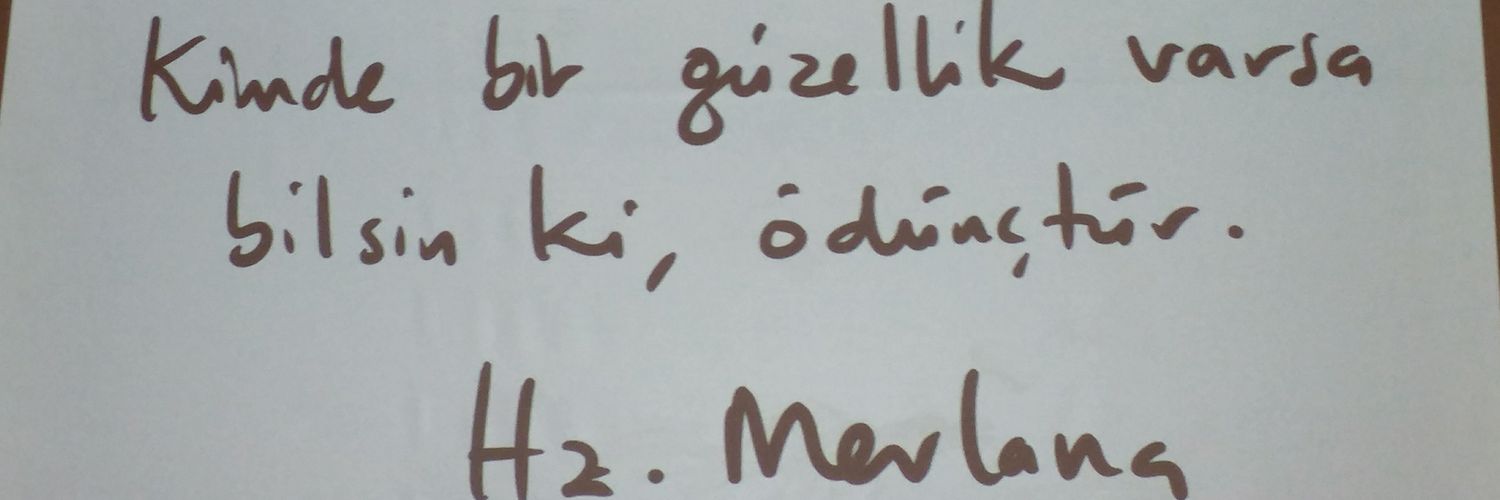 Kimde bir güzellik varsa
bilsin ki, ödünçtür.
Hz. Mevlana